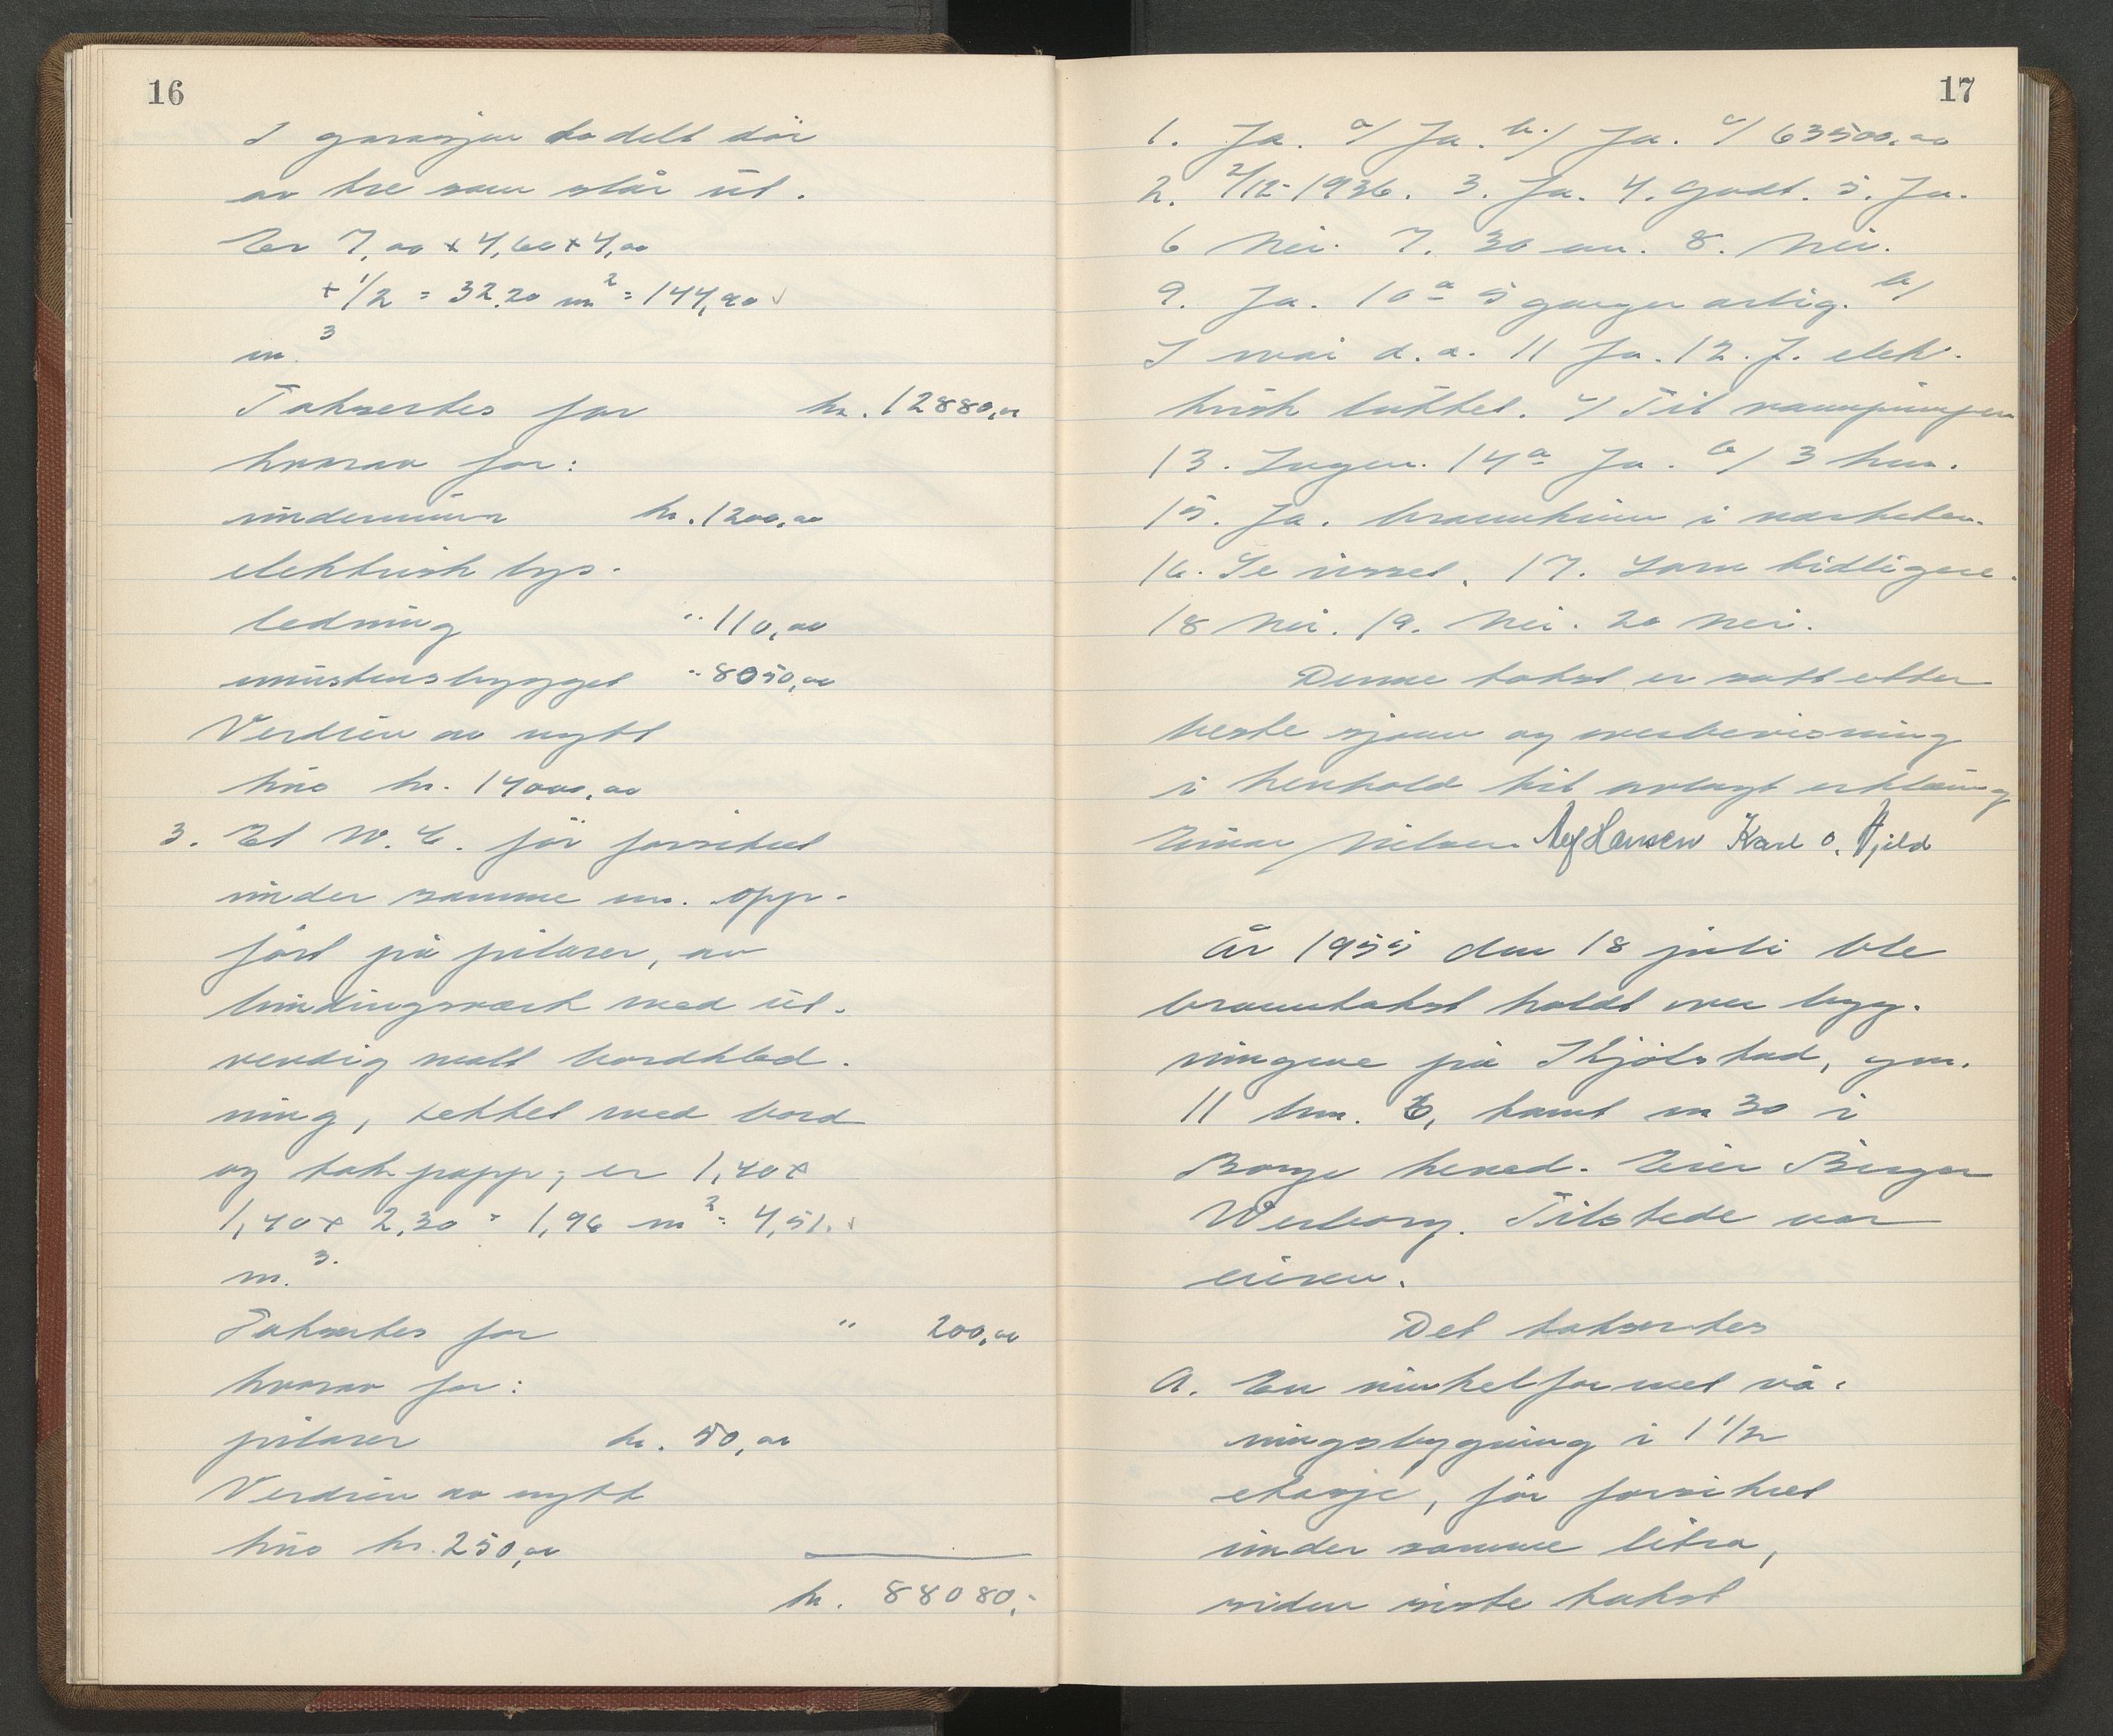 16
I garasjen todelt dör
av tre som slår ut.
Er 7,00 x 4,60 x 4,00
+ 1/2 = 32,20 m2 = 144,90 ✓
m.3
Takseres for kr. 12880,00
hvorav for:
undermur kr. 1200,00
elektrisk lys-
ledning " 110,00
murstensbygget " 8050,00
Verdien av nytt
hus kr. 14000,00
3. Et W.C. för forsikret
under samme nr. opp-
fört på pilarer, av
bindingsverk med ut-
vendig malt bordkled-
ning, tekket med bord
og takpapp, er 1,40 x
1,40 x 2,30 = 1,96 m2 = 4,51. ✓
m.3.
Takseres for " 200,00
hvorav for:
pilarer kr. 50,00
Verdien av nytt
hus kr. 250,00
kr. 88080,-
17
1. Ja. a/ Ja. b./ Ja. c/ 63500,00
2. 2/12-1936. 3. Ja. 4. Godt. 5. Ja.
6 Nei. 7. 30 cm. 8. Nei.
9. Ja. 10 a 5 ganger årlig. b/
I mai d.å. 11 Ja. 12. J. elek-
trisk luttet. c/ Til vannpumpen
13. Ingen. 14 a Ja. b/ 3 km.
15. Ja. brannkum i nærheten.
16. Se uvvet. 17. Som tidligere.
18 Nei. 19. Nei. 20 Nei.
Denne takst er satt etter
beste skjönn og overbevisning
i henhold til avlagt erklæring
Einar Nilsen Alf Hansen Karl O. Hjeld
År 1955 den 18 juli ble
branntakst holdt over byg-
ningene på Skjölstad, gnr.
11 bnr. 6, takst nr 30 i
Borge herred. Eier Birger
Wiborg. Tilstede var
eieren.
Det takseres
A. En vinkelformet vå-
ningsbygning i 1 1/2
etasje, för forsikret
under samme litra,
siden siste takst